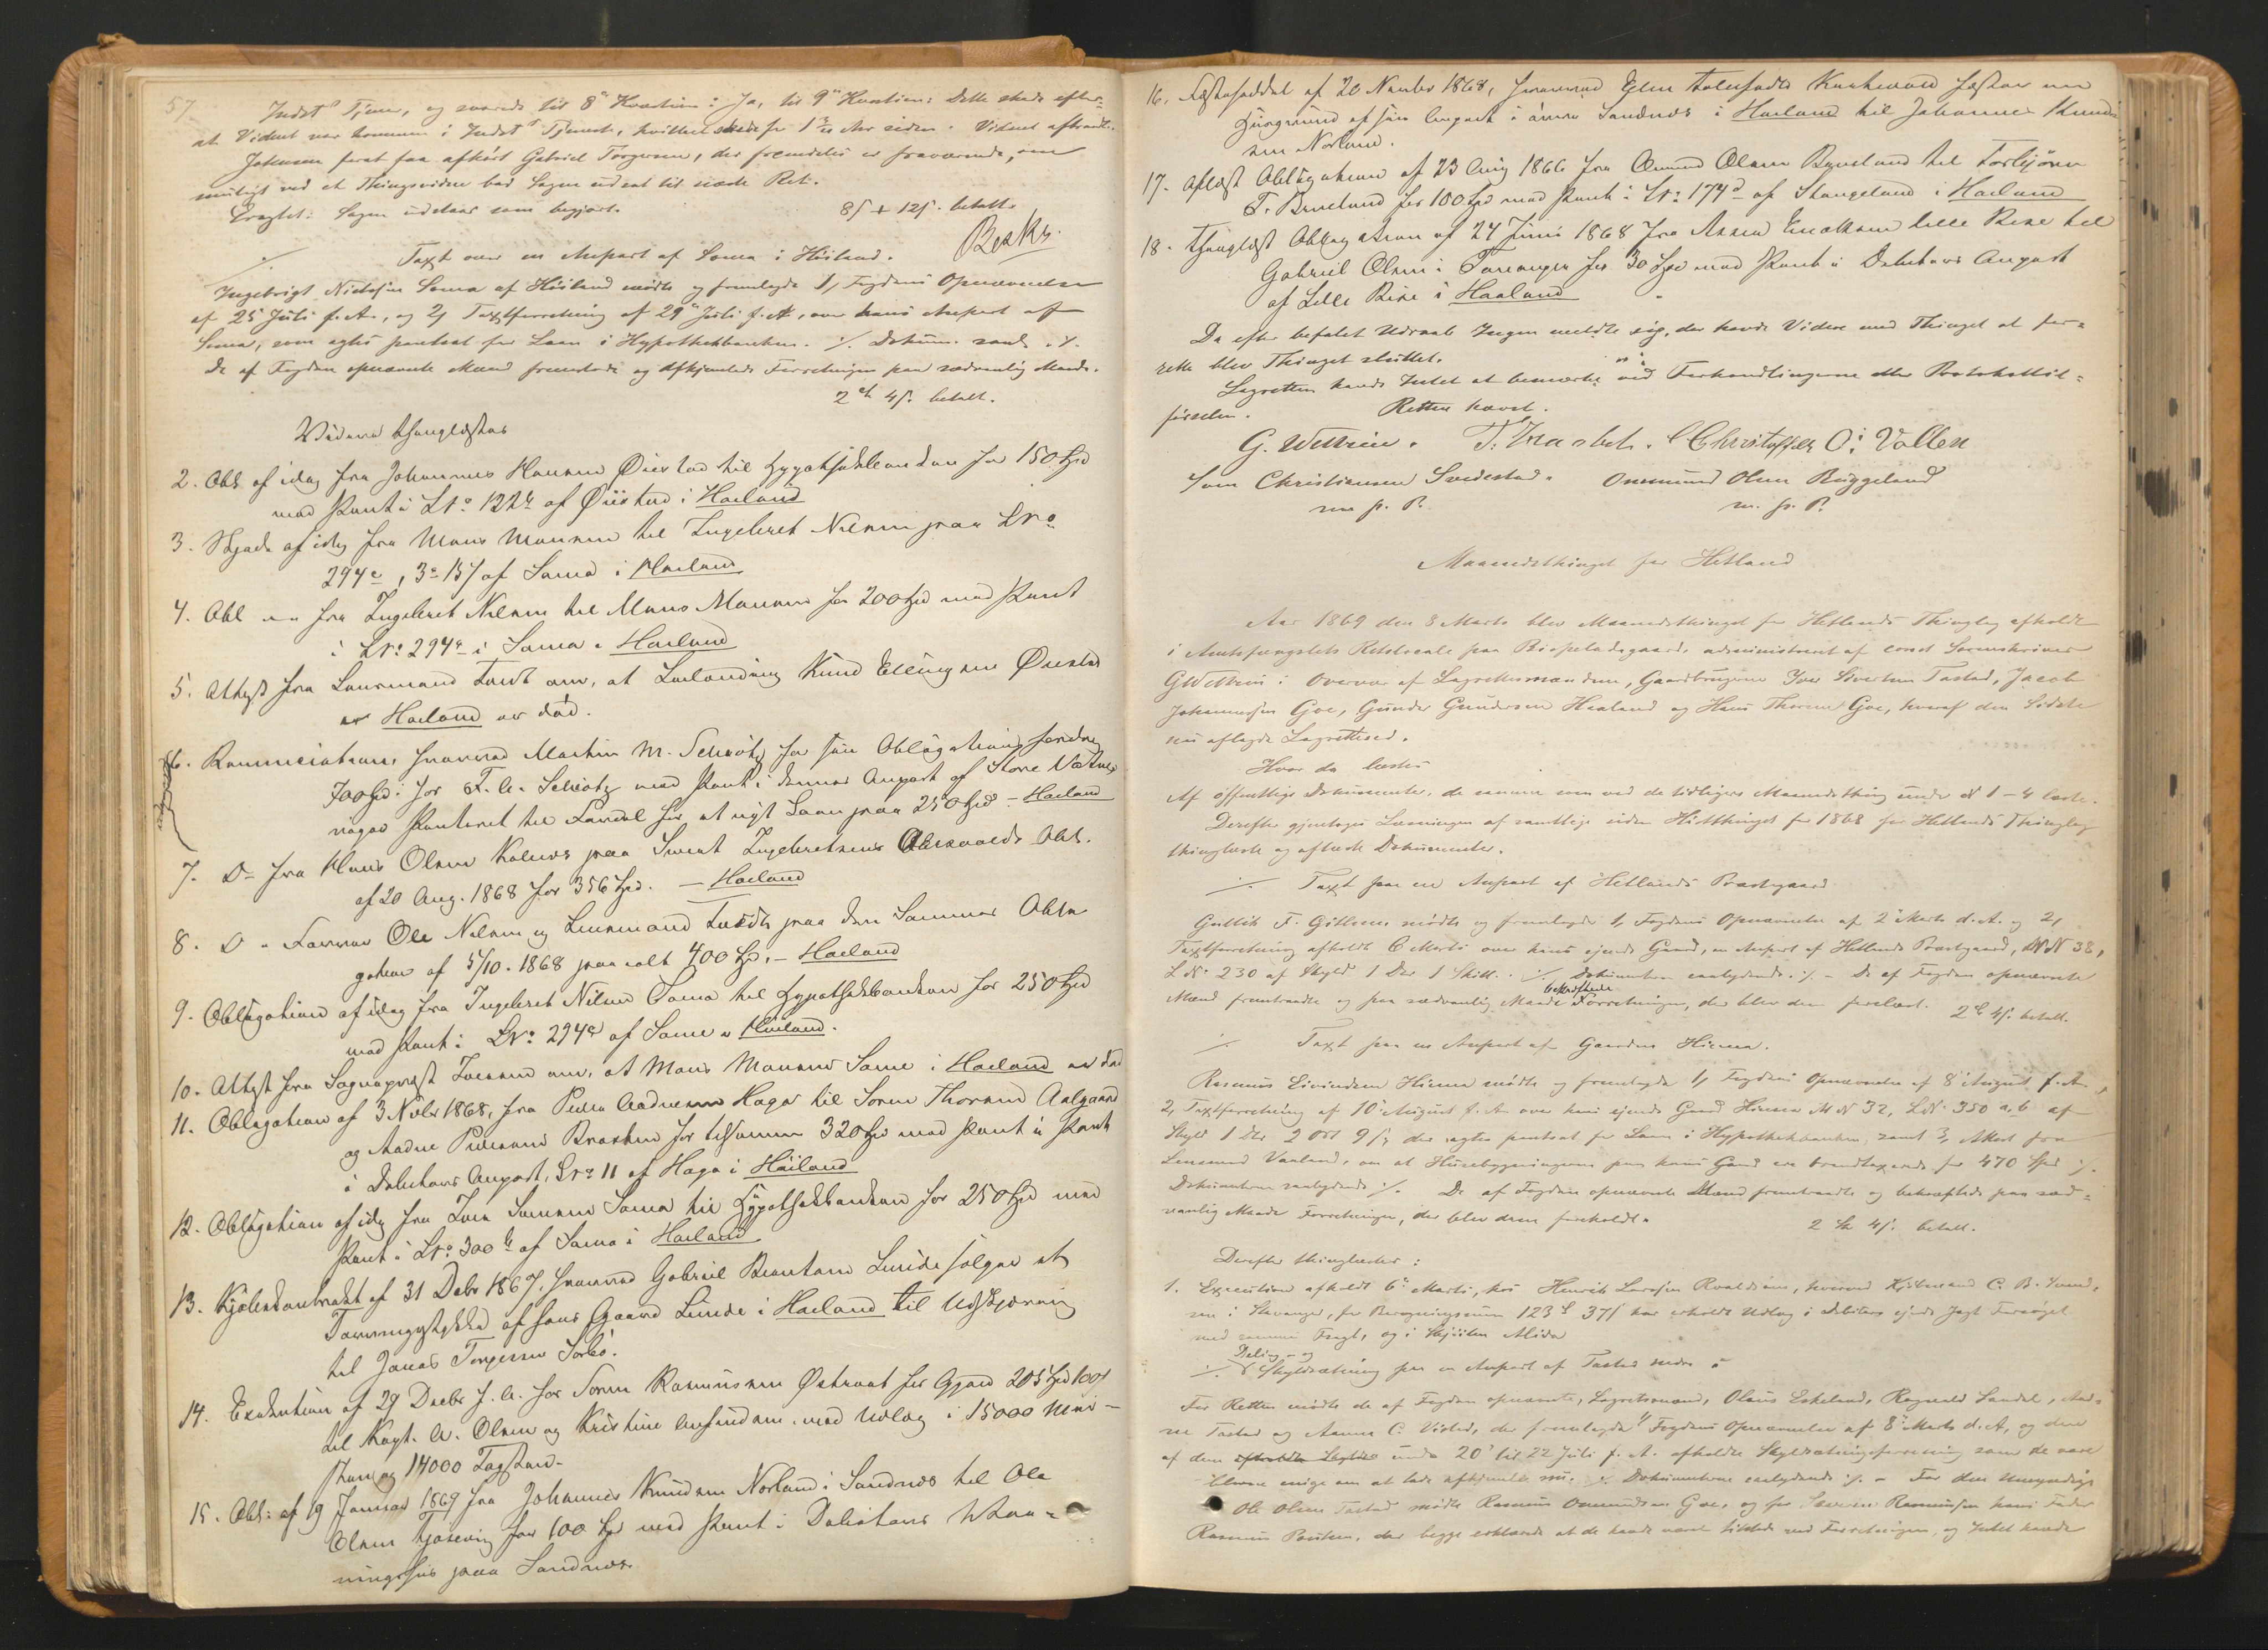 57
Indst Tjener, og svarede til 8de Kvæstion: Ja, til 9de Kvæstion: Dette skede efter
at Vidnet var kommen i Indst Tjeneste, hvilket skede for 1 Aar siden. Vidnet aftraadte.
Johnsen for at faa afhört Gabriel Torgersen, der fremdeles er fraværende, om
muligt ved et Thingsvidne bad Sagen udsat til næste Ret.
Eragtet: Sagen udstaar som begjært.
8 s + 12 s. betalt.
Taxt over en Anpart af Soma i Höiland.
Ingebrigt Nielsen Soma af Höiland mödte og fremlagde 1, Fogdens Opnævnelse
af 25 Juli f. A., og 2, Taxtforretning af 29 Juli f. A., over hans Anpart af
Soma, som agtes pantsat for Laan i Hypothekbanken. ./. Dokum. ./.
De af Fogden opnævnte Mænd fremstode og afhjemlede Forretningen paa sædvanlig Maade.
2 4 s. betalt.
Videre thinglæstes
2. Obl. af idag fra Johannes Hansen Öiestad til Hypothekbanken for 150 Spd
med Pant i LNo 122 af Öiestad i Höiland
3. Skjøde af idag fra Mons Monsen til Ingebret Nilsen paa LNo
294, 3 15 s af Soma i Höiland
4. Obl. fra Ingebret Nilsen til Mons Monsen for 200 Spd med Pant
i LNo 294 i Soma i Höiland
5. Attest fra Lensmand Tveidt om, at Knud Ellingsen Öiestad
af Höiland er död.
6. Renunciation, hvorved Martin M. Schiötz for sin Obligations fordring
700 Spd for F. A. Schiötz med Pant i dennes Anpart af Store
viger Panteret til Fordel for et nyt Laan paa 250 Spd - Höiland
7. Do fra Hans Olsen Kalnes paa Svend Ingebretsens Obl.
af 20 Aug. 1868 for 356 Spd. - Höiland
8. Do Ole Nilsen og Lensmand Tveidt paa den Sammes Obli
gation af 5/10. 1868 paa alt 400 Spd. - Höiland
9. Obligation af idag fra Ingebret Nilsen Soma til Hypothekbanken for 250 Spd
med Pant i LNo 294 af Soma i Höiland.
10. Attest fra Sognepræst om, at Mons Monsen Soma i Höiland er död
11. Obligation af 3 Novbr 1868, fra Peder Aadnesen Hogar til Soren Thorsen Aalgaard
og Aadne Pedersen Braaten for tilsammen 320 Spd med Pant i
i Debitors Anpart, LNo 11 af Hoga i Höiland
12. Obligation af idag fra Soma til Hypothekbanken for 250 Spd med
Pant i LNo 300 af Soma i Höiland
13. Kjöbekontrakt af 31 Decbr 1867, hvorved Gabriel Lunde sælger et
af hans Gaard Lunde i Höiland til Udskjæring
til Jonas Torgersen Sörbö.
14. Exekution af 29 Decbr f. A. for Soren Rasmussen Östraat for Gjæld 205 Spd
til Kapt. A. Olsen og Kristine med Udlæg i 15000
og 14000 Tagsten.
15. Obl: af 9 Januar 1869 fra Johannes Knudsen Norland i Sandnæs til Ole
Olsen for 100 Spd med Pant i Debitors Vaa-
ningshus paa Sandnæs.
16. Fæsteseddel af 20 Novbr 1868, hvorved Elen fæster en
Huusgrund af sin Anpart i övre Sandnæs i Höiland til Johannes Knud
sen Norland.
17. Aflæst Obligation af 23 Aug 1866 fra Olsen til Torbjörn
T. for 100 Spd med Pant i LNo 174 af Stangeland i Höiland
18. Thinglæst Obligation af 24 Juni 1868 fra lille Bere til
Gabriel Olsen i Stavanger for 30 Spd med Pant i Debitors Anpart
af Lille Bere i Haaland
Da efter befalet Udraab Ingen meldte sig, der havde Videre med Thinget at for-
rette blev Thinget sluttet.
Lagretten havde Intet at bemærke ved Forhandlingerne eller Protokoltil-
förselen. Retten hævet.
G. Wettrein. Christoffer O: Vollen
Christiansen Svedestad. Osmund Olsen Ruggeland
m. p. P. m. p. P.
Maanedsthinget for Hetland
Aar 1869 den 8 Marts blev Maanedsthinget for Hetlands Thinglag afholdt
i Amtsfængslets Retslocale paa Bispeladegaard, administreret af const Sorenskriver
G Wettrein i Overvær af Lagrettesmændene, Gaardbrugerne Iver Sivertsen Tastad, Jacob
Johannesen Goe, Gunder Gundersen Haaland og Hans Thorsen Goe, hvoraf den Sidste
nu aflagde Lagretteed.
Hvor da læstes
Af offentlige Dokumenter, de samme som ved de tidligere Maanedsthing under N 1-4 læste.
Derefter gjentoges Læsningen af samtlige siden Höstthinget for 1868 for Hetlands Thinglag
thinglæste og aflæste Dokumenter.
./. Taxt paa en Anpart af Hetlands Præstegaard
Gullik F. Gillesen mödte og fremlagde 1, Fogdens Opnævnelse af 2 Marts d. A. og 2,
Taxtforretning afholdt 6 Marts over hans ejende Gaard, en Anpart af Hetlands Præstegaard, MN 38,
LNo 230 af Skyld 1 Dlr 1 Skill. ./. Dokumenterne saalydende. ./. - De af Fogden opnævnte
Mænd fremtraadte og paa sædvanlig Maade bekræftede Forretningen, der blev dem forelæst. 2 4 s. betalt.
./. Taxt paa en Anpart af Gaarden Hinna.
Rasmus Eivindsen Hinna mödte og fremlagde 1, Fogdens Opnævnelse af 8 August f. A.,
2, Taxtforretning af 10 August f. A. over hans ejende Gaard Hinna MN 32, LN 350 a, b af
Skyld 1 Dlr 2 Ort 9 s, der agtes pantsat for Laan i Hypothekbanken, samt 3, Attest fra
Lensmand Vaaland, om at Husebygningerne paa hans Gaard ere brandtaxerede for 470 Spd ./.
Dokumenterne saalydende ./. De af Fogden opnævnte Mænd fremtraadte og bekræftede paa sæd-
vanlig Maade Forretningen, der blev dem foreholdt. 2 4 s. betalt.
Derefter thinglæstes:
1. Execution afholdt 6 Marts, hos Henrik Larsen hvorved Kjöbmand C. B. Svend-
sen i Stavanger, for Beregningssum 123 37 s har erholdt Udlæg i Debitors ejende Jagt Forsöget
med Fragt, og i Skjöiten Alida
Deling- og
./. Skyldsætning paa en Anpart af Tastad nedre
For Retten mödte de af Fogden opnævnte, Lagretsmænd, Olaus Eskeland, Ragnvald Sandal, Aad-
ne Tastad og Aanen C. Visted, der fremlagde 1, Fogdens Opnævnelse af 8 Marts d. A, og den
af dem under 20 til 22 Juli f. A. afholdte Skyldsætningsforretning som de vare
blevne enige om at lade afhjemle nu. ./. Dokumenterne saalydende ./. - For den Umyndige
Ole Olsen Tastad mödte Rasmus Osmundsen Goe, og for Rasmussen hans Fader
Rasmus Poulsen, der begge erklærede at de havde været tilstede ved Forretningen, og Intet havde